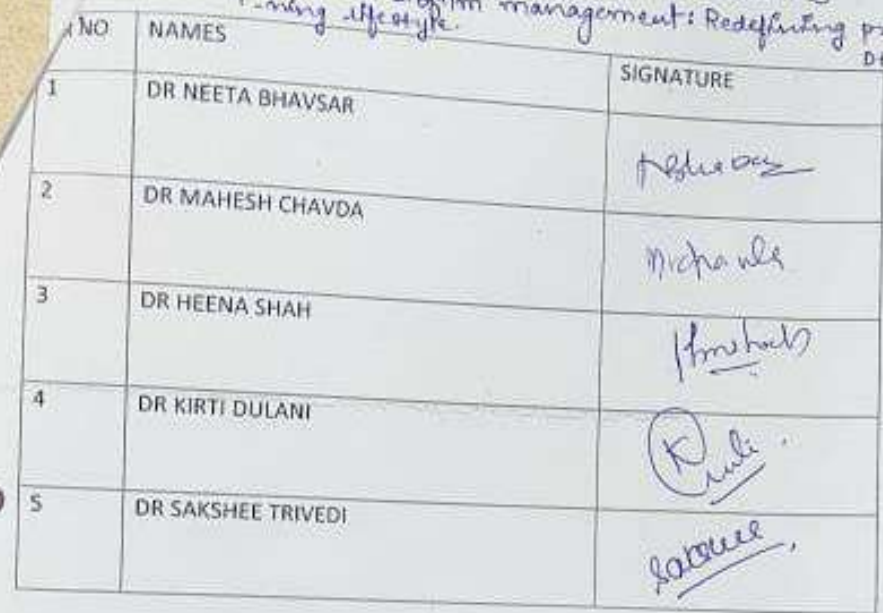 management: Redefining
lifestyle.
NO NAMES SIGNATURE
1 DR NEETA BHAVSAR
2 DR MAHESH CHAVDA
3 DR HEENA SHAH
4 DR KIRTI DULANI
5 DR SAKSHEE TRIVEDI